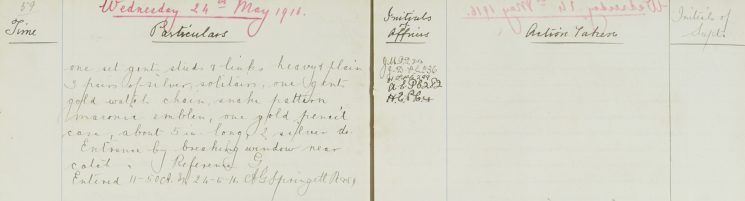 59
Wednesday 24th May 1916.
Time
Particulars
one set gent studs & links heavy & plain
3 pairs of silver solitairs, one gent
gold watch chain, snake pattern
masonic emblem, one gold pencil
case, about 5 in. long, 2 silver do.
Entrance by breaking window near
catch. Reference G.
Entered 11-50 24-5-16 A G Springett
Initials
Affairs
Action Taken
Initials of
Supts